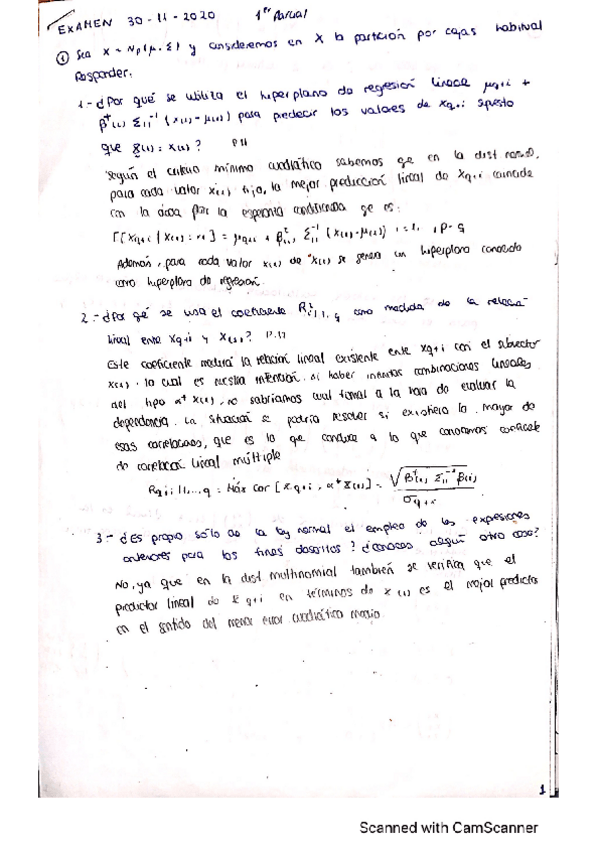 EXAMEN 30-11-2020 1er Parcial
① Sea X ~ Np(μ, Σ) y consideremos en X la partición por cajas habitual
Responder:
1.- ¿Por qué se utiliza el hiperplano de regresión lineal μq+i +
βt(i) Σ11^-1 (x(1) - μ(1)) para predecir los valores de Xq+i supuesto
que X(1) = x(1)?
Según el criterio mínimo cuadrático sabemos qe en la dist normal,
para cada valor x(1) fijo, la mejor predicción lineal de Xq+i coincide
con la dada por la esperanza condicionada qe es:
Además, para cada valor x(1) de X(1) se genera un hiperplano conocido
como hiperplano de regresión.
2.- ¿Por qé se usa el coeficiente como medida de la relación
lineal entre Xq+i y X(1)? P.17
Este coeficiente medirá la relación lineal existente ente Xq+i con el subvector
X(1), lo cual es nuestra intención. Al haber infinitas combinaciones lineales
del tipo αt X(1), no sabríamos cual tomar a la hora de evaluar la
dependencia. La situación se podría resolver si existiera la mayor de
esas correlaciones, que es lo que conduce a lo que conocemos coeficiente
de correlación lineal múltiple
Rq+i|1,...,q = Máx Cor [Xq+i, αt X(1)] = √(βt(i) Σ11^-1 β(i)) / σq+i
3.- ¿Es propio sólo de la ley normal el empleo de las expresiones
anteriores para los fines descritos? ¿Conoces algún otro caso?
No, ya que en la dist multinomial también se verifica que el
predictor lineal de Xq+i en términos de X(1) es el mejor predictor
en el sentido del menor error cuadrático medio.
1
Scanned with CamScanner